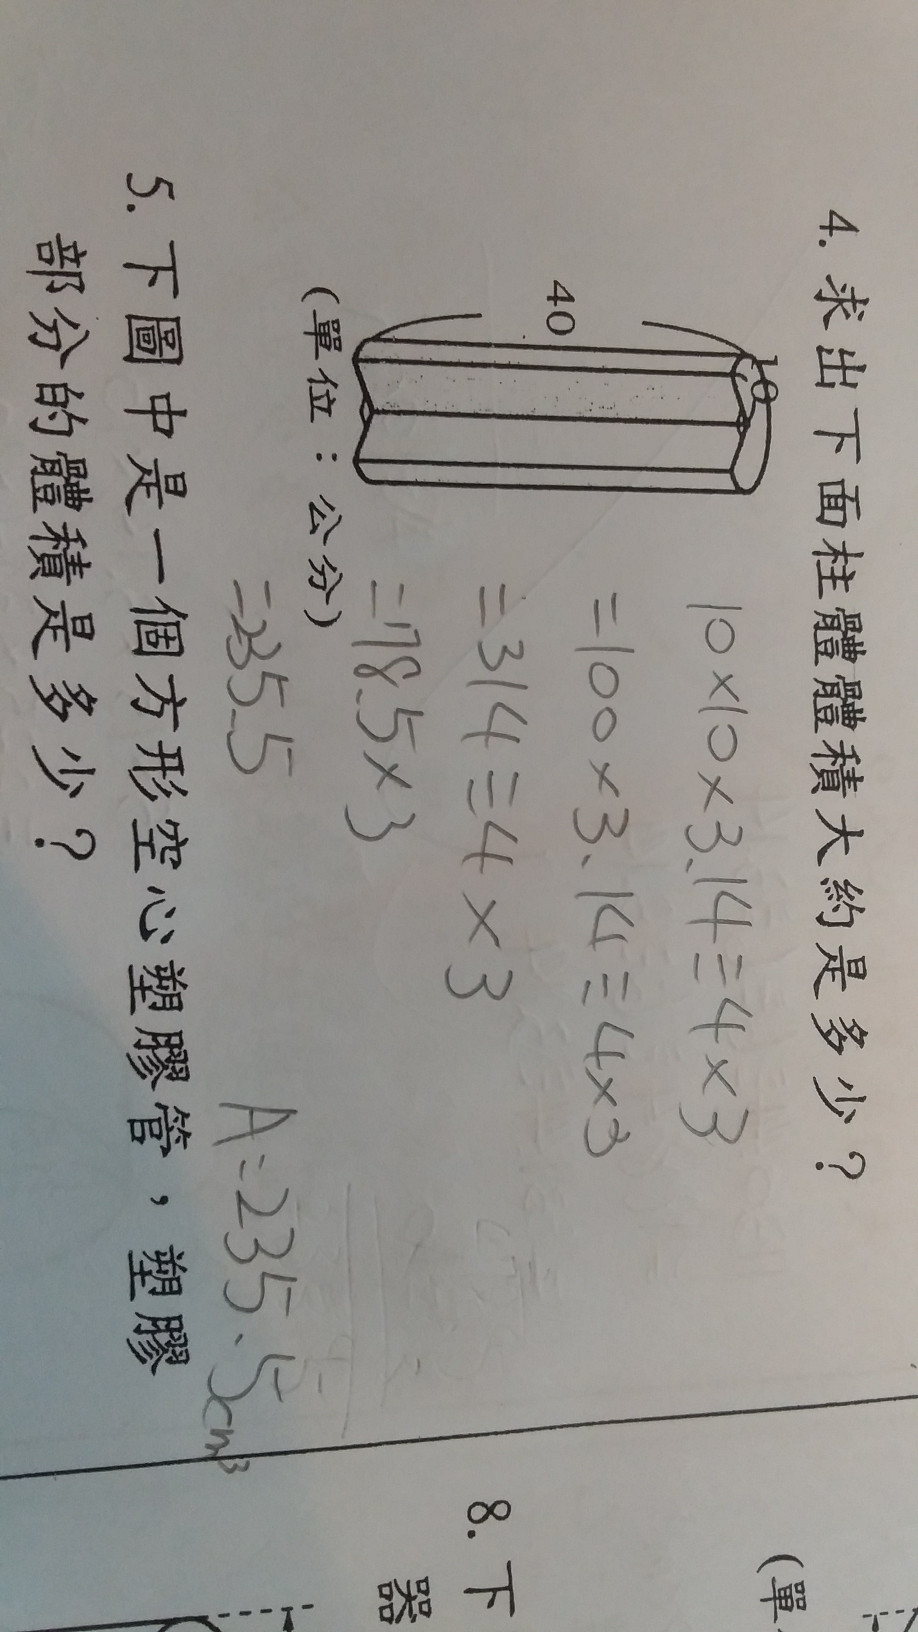 4. 求出下面柱體體積大約是多少?
10
40
(單位:公分)
10×10×3.14÷4×3
=100×3.14÷4×3
=314÷4×3
=78.5×3
=235.5
A:235.5cm³
5. 下圖中是一個方形空心塑膠管,塑膠
部分的體積是多少?
(單
8. 下
器